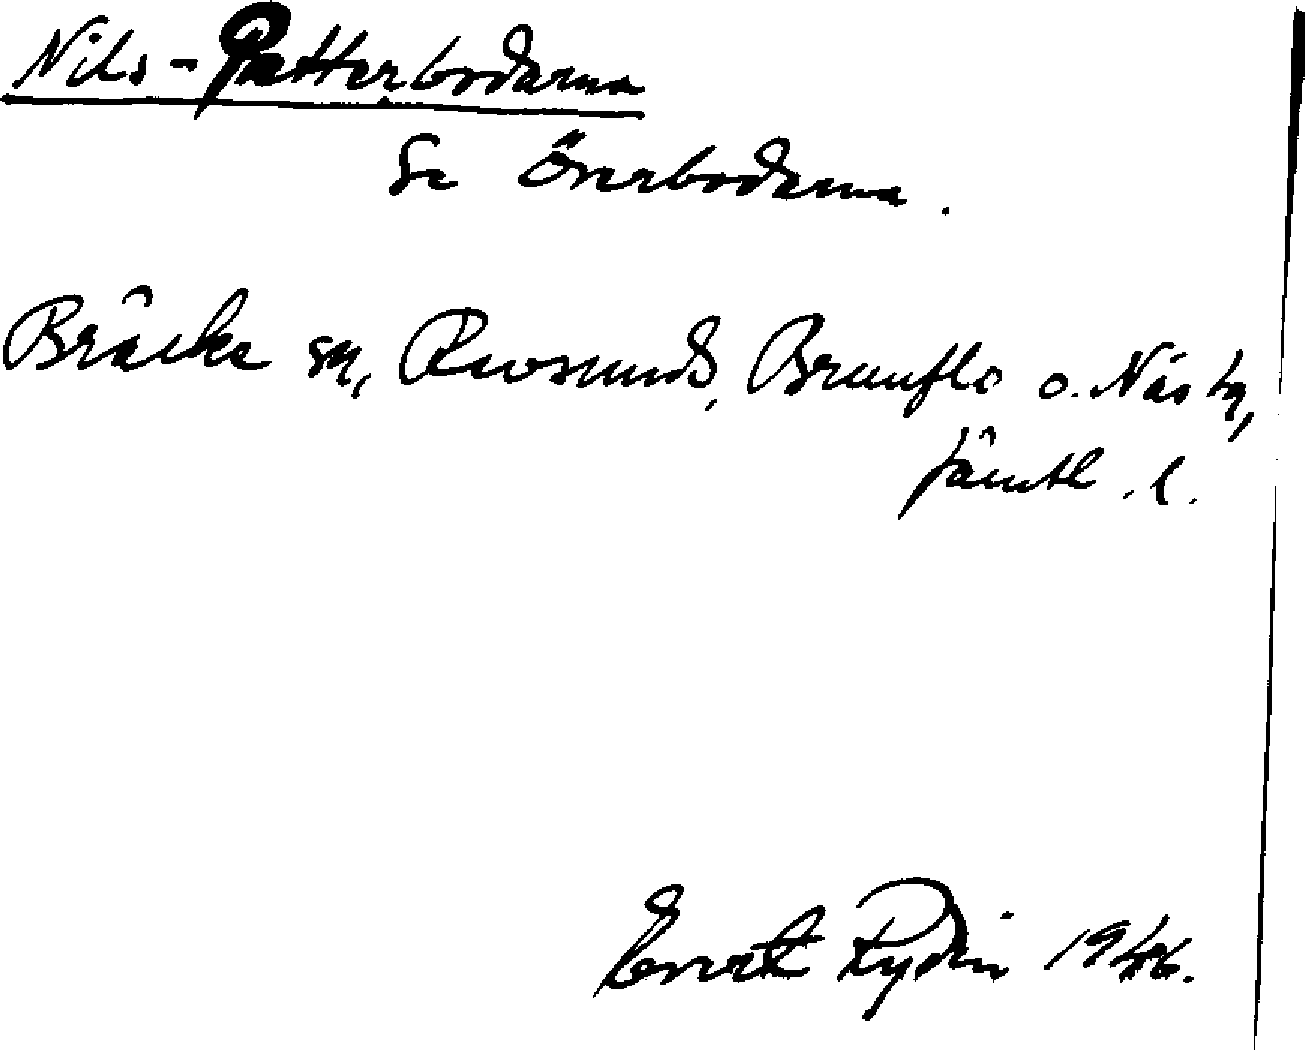 Nils-Petterbodarna
Se Överbodarna.
Bräcke sn, Revsunds, Brunflo o. Näs tg,
Jämtl. l.
Evert Rydin 1946.